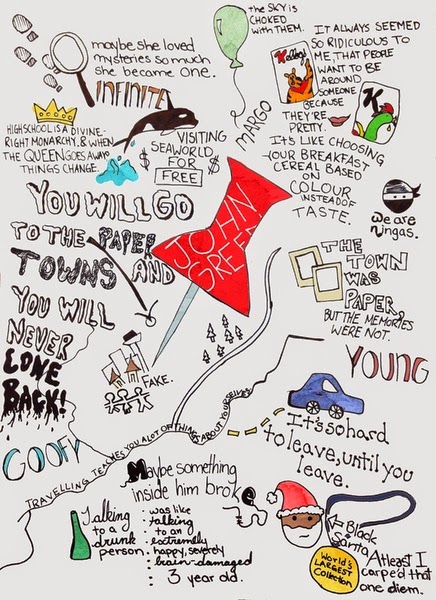 the SKY is
CHOKED
with THEM.
maybe she loved
mysteries so much
she became one.
INFINITE
MARGO
IT ALWAYS SEEMED
SO RIDICULOUS TO
ME, THAT PEOPLE
WANT TO BE
AROUND
SOMEONE
BECAUSE
THEY'RE
PRETTY.
IT'S LIKE CHOOSING
YOUR BREAKFAST
CEREAL BASED
ON
COLOUR
INSTEAD OF
TASTE.
K
HIGHSCHOOL IS A DIVINE-
RIGHT MONARCHY, & WHEN
THE QUEEN GOES AWAY
THINGS CHANGE.
$
$
VISITING
SEAWORLD
FOR
FREE
we are
ningas.
YOU WILL GO
TO THE PAPER
TOWNS AND
YOU WILL
NEVER
COME
BACK!
JOHN
GREEN
THE
TOWN
WAS
PAPER,
BUT THE MEMORIES
WERE NOT.
FAKE.
YOUNG
GOOFY
TRAVELLING TEACHES YOU ALOT OF THINGS ABOUT YOURSELVES
It's so hard
to leave, until you
leave.
Maybe something
inside him broke
Talking
to a
drunk
person
was like
talking
to an
extremely
happy, severely
brain-damaged
3 year old.
Black
Santa
WORLD'S
LARGEST
COLLECTION
Atleast I
carpe'd that
one diem.